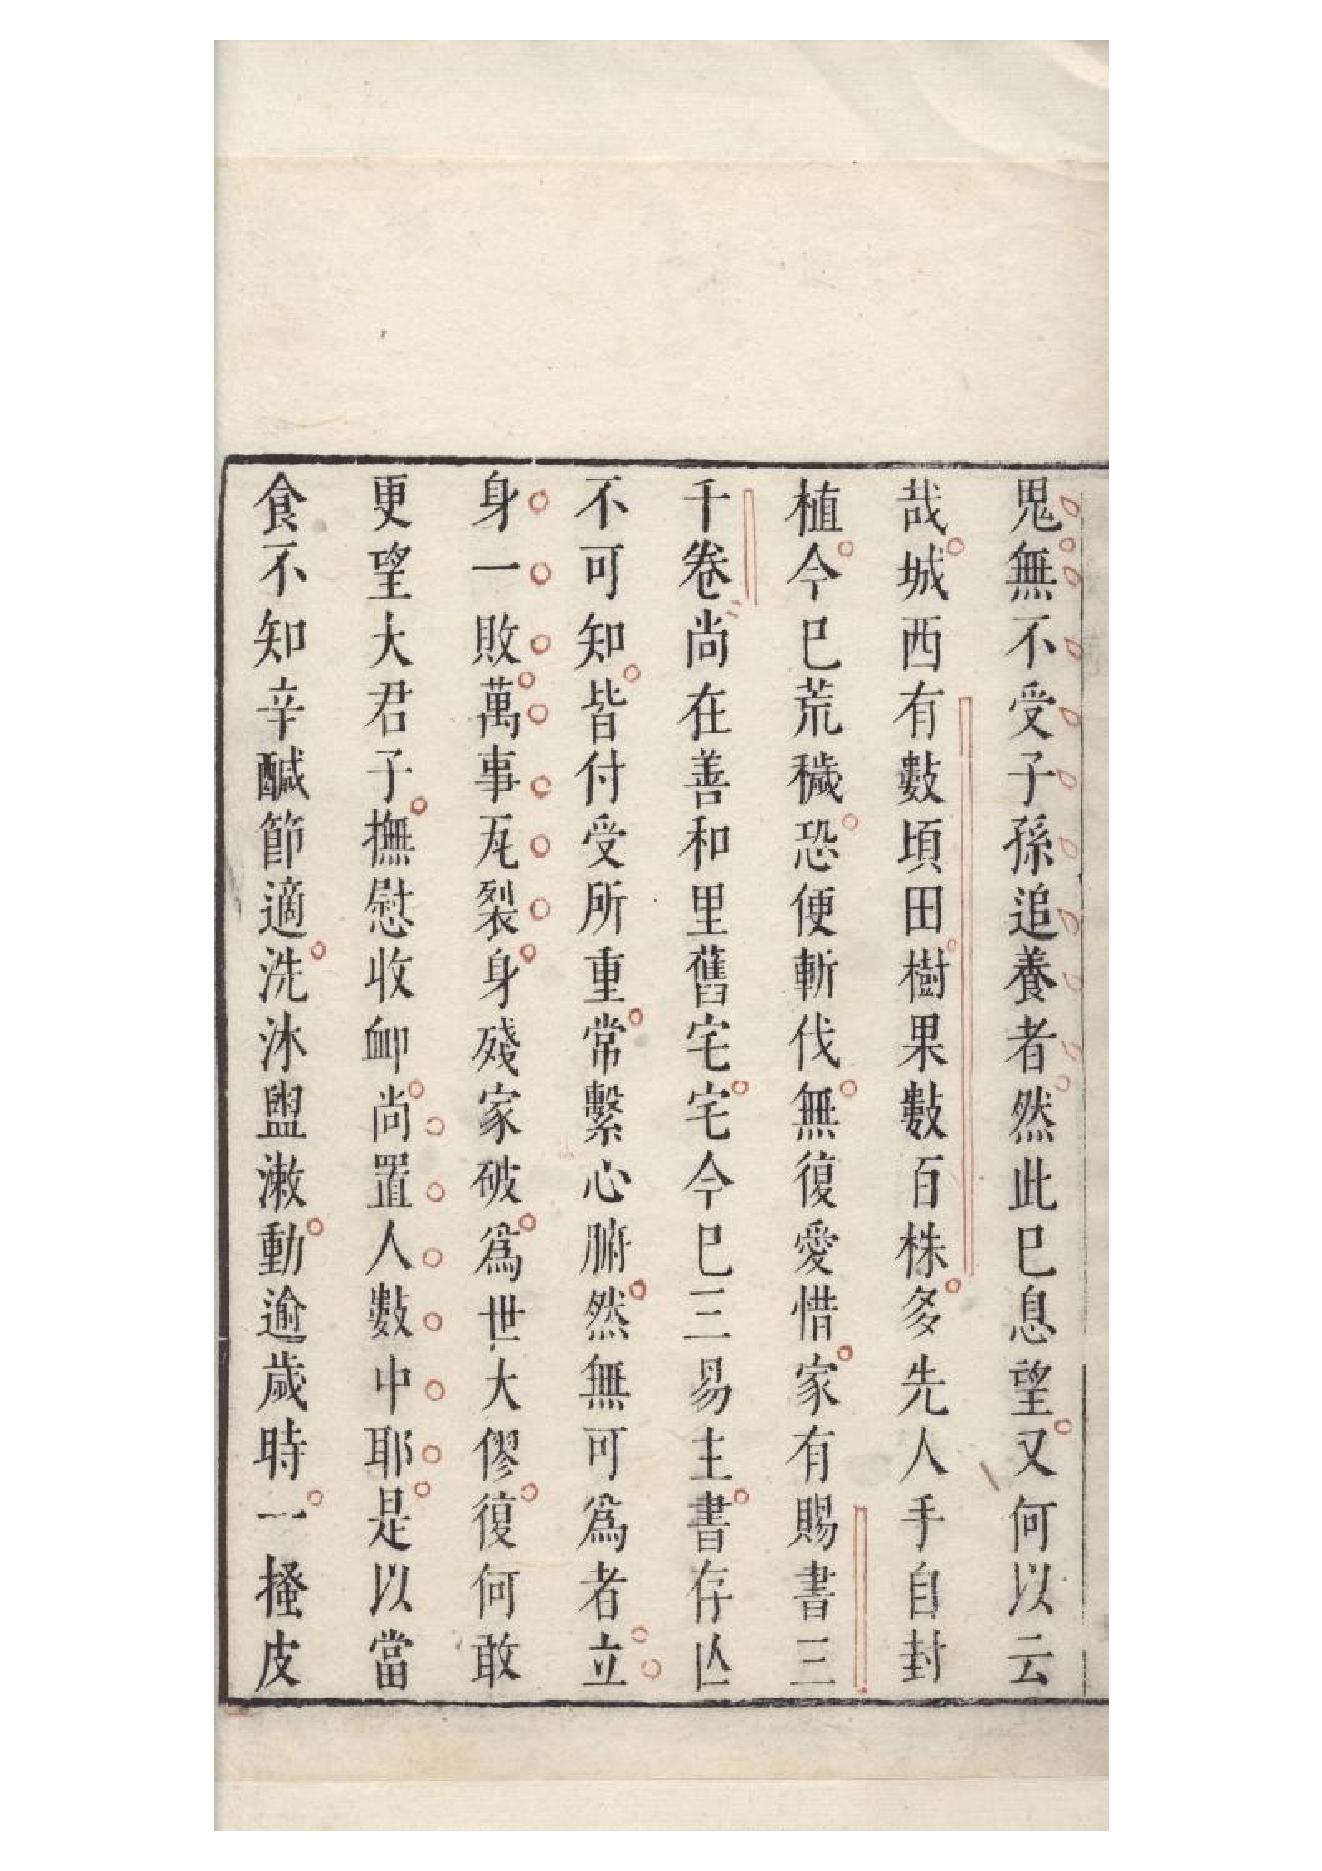 鬼無不受子孫追養者然此已息望又何以云
哉城西有數頃田樹果數百株多先人手自封
植今已荒穢恐便斬伐無復愛惜家有賜書三
千卷尚在善和里舊宅宅今已三易主書存亾
不可知皆付受所重常繫心腑然無可爲者立
身一敗萬事瓦裂身殘家破爲世大僇復何敢
更望大君子撫慰收卹尚置人數中耶是以當
食不知辛醎節適洗沐盥漱動逾歲時一搔皮